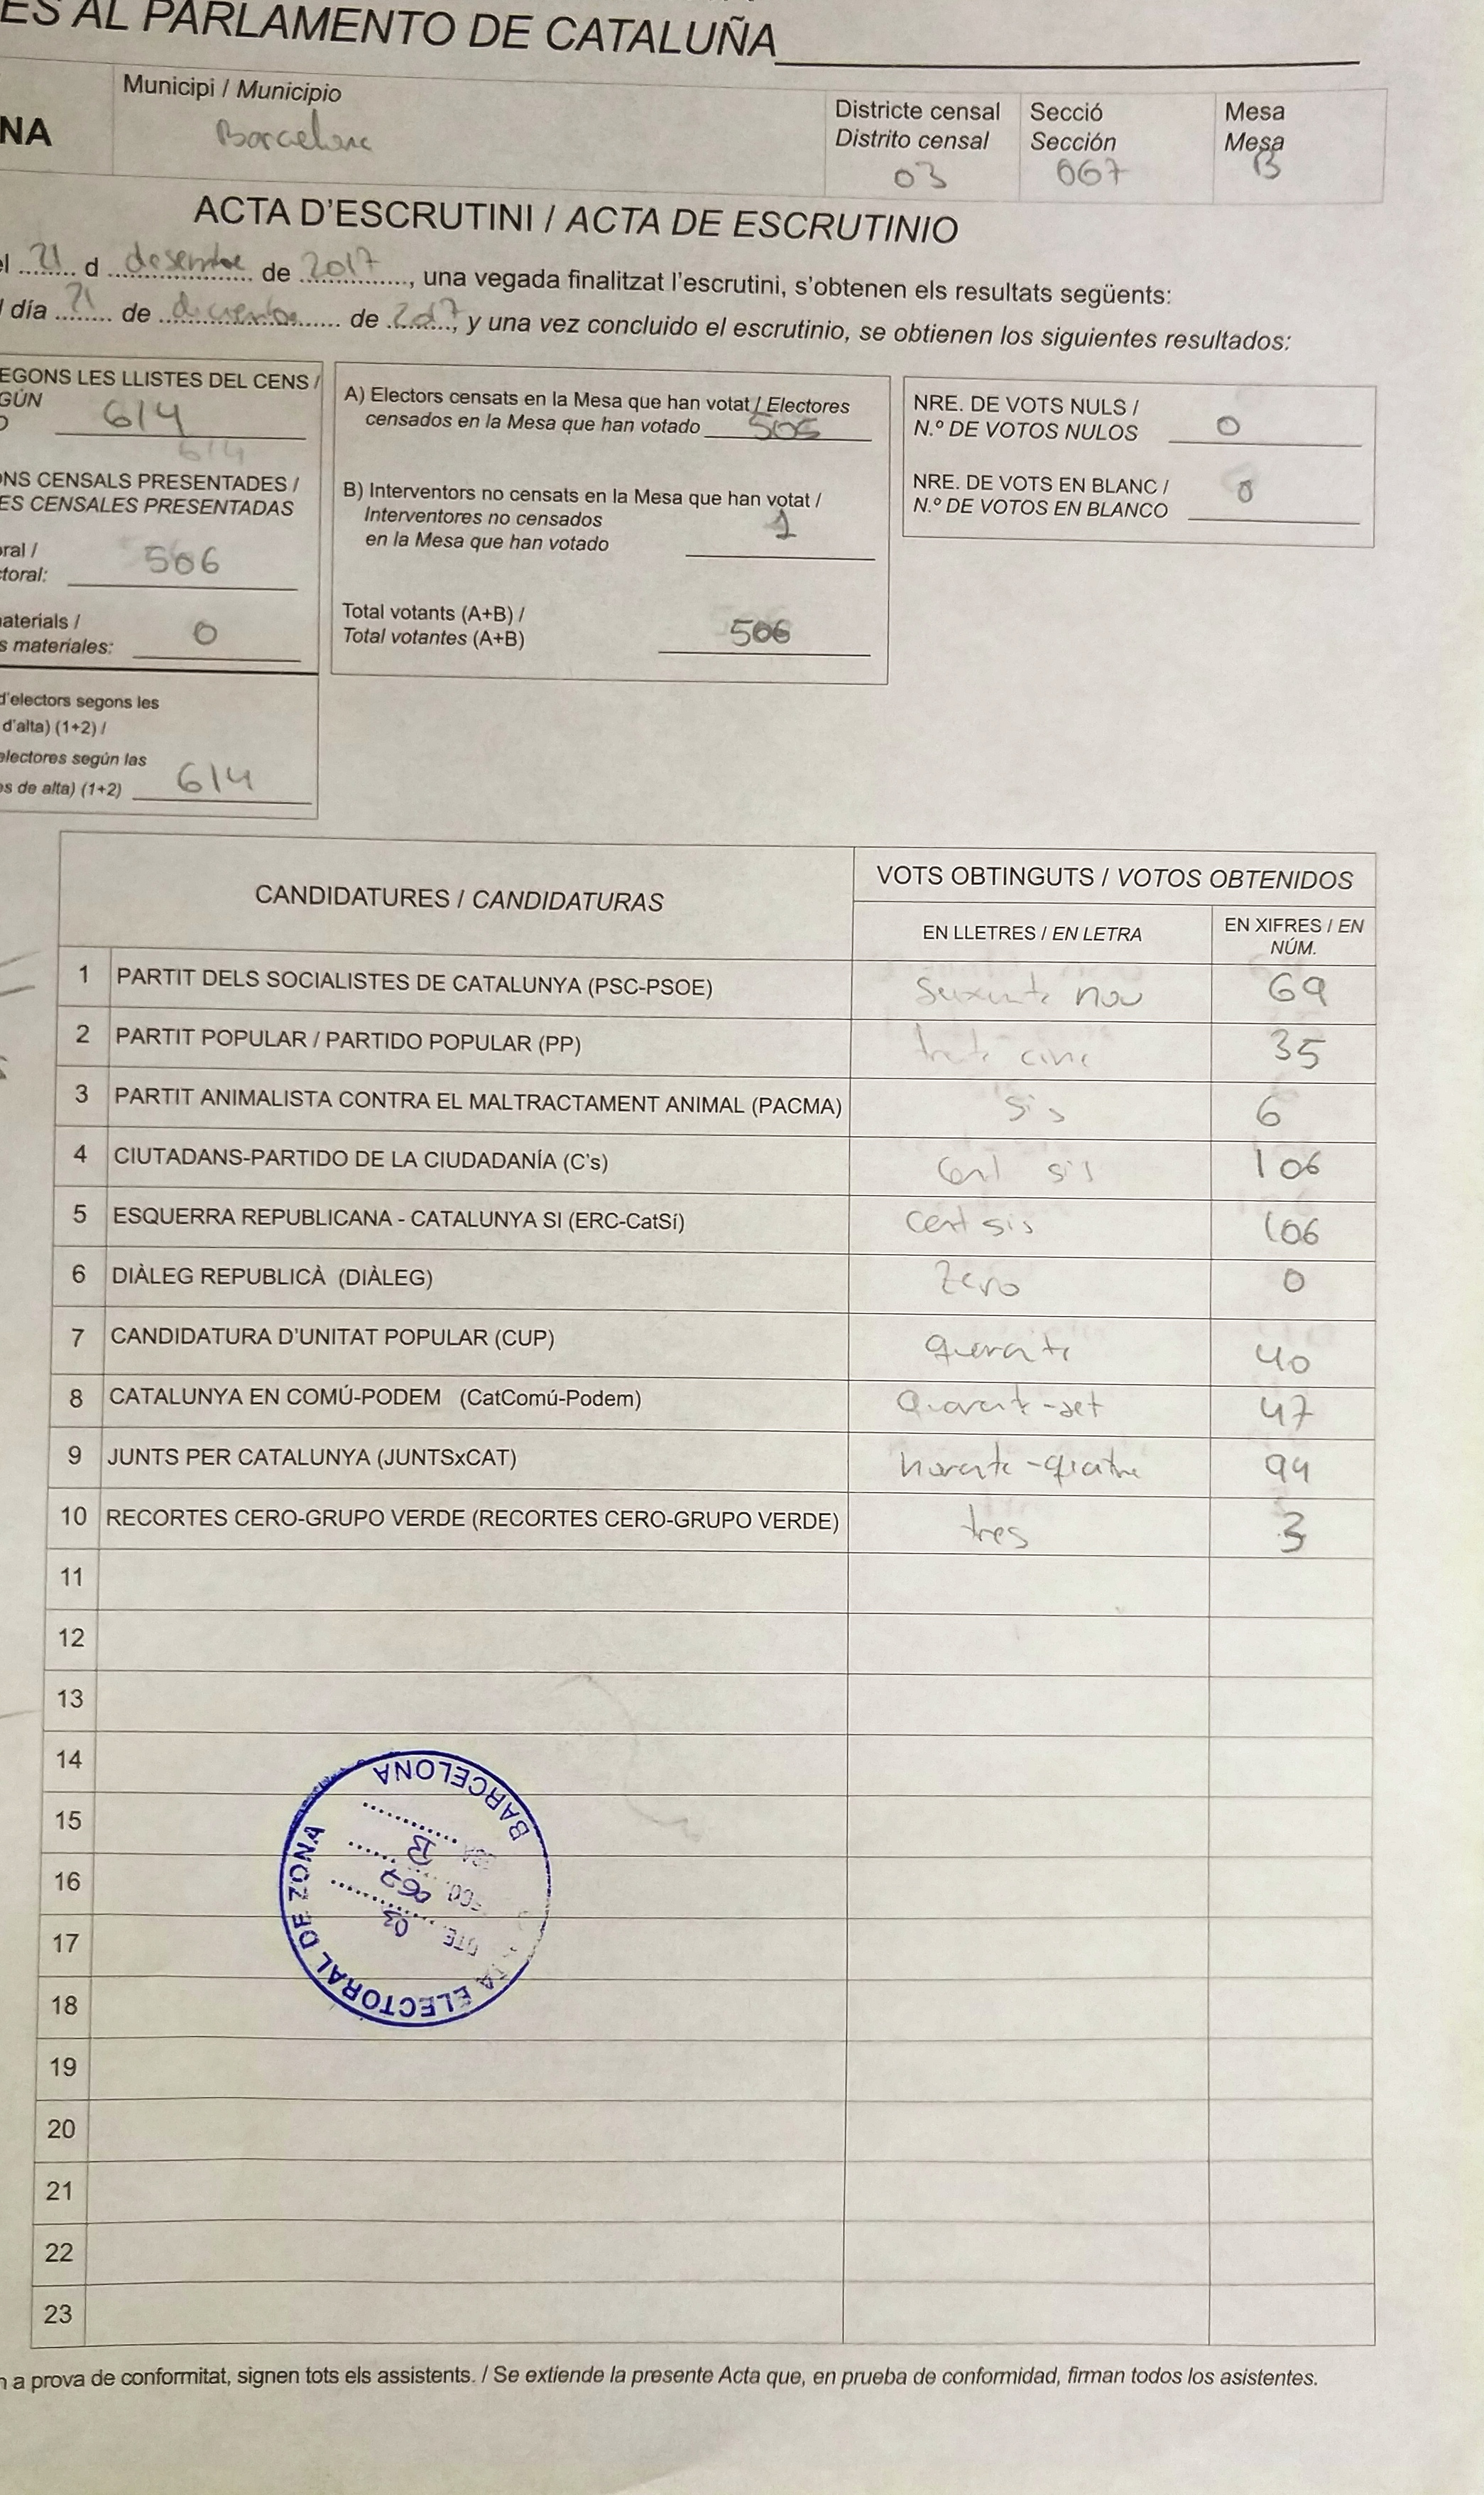 ES AL PARLAMENTO DE CATALUÑA
NA
Municipi / Municipio
Barcelona
Districte censal
Distrito censal
03
Secció
Sección
067
Mesa
Mesa
B
ACTA D'ESCRUTINI / ACTA DE ESCRUTINIO
el 21 d desembre de 2017, una vegada finalitzat l'escrutini, s'obtenen els resultats següents:
día 21 de de 2017, y una vez concluido el escrutinio, se obtienen los siguientes resultados:
EGONS LES LLISTES DEL CENS /
GÚN
O 614
614
ONS CENSALS PRESENTADES /
ES CENSALES PRESENTADAS
oral /
ctoral: 506
materials /
s materiales: 0
d'electors segons les
d'alta) (1+2) /
electores según las
es de alta) (1+2) 614
A) Electors censats en la Mesa que han votat / Electores
censados en la Mesa que han votado 505
B) Interventors no censats en la Mesa que han votat /
Interventores no censados
en la Mesa que han votado 1
Total votants (A+B) /
Total votantes (A+B) 506
NRE. DE VOTS NULS /
N.º DE VOTOS NULOS 0
NRE. DE VOTS EN BLANC /
N.º DE VOTOS EN BLANCO 0
CANDIDATURES / CANDIDATURAS
VOTS OBTINGUTS / VOTOS OBTENIDOS
EN LLETRES / EN LETRA
EN XIFRES / EN
NÚM.
1 PARTIT DELS SOCIALISTES DE CATALUNYA (PSC-PSOE) seixanta nou 69
2 PARTIT POPULAR / PARTIDO POPULAR (PP) trenta cinc 35
3 PARTIT ANIMALISTA CONTRA EL MALTRACTAMENT ANIMAL (PACMA) sis 6
4 CIUTADANS-PARTIDO DE LA CIUDADANÍA (C's) Cent sis 106
5 ESQUERRA REPUBLICANA - CATALUNYA SI (ERC-CatSí) cent sis 106
6 DIÀLEG REPUBLICÀ (DIÀLEG) Zero 0
7 CANDIDATURA D'UNITAT POPULAR (CUP) quaranta 40
8 CATALUNYA EN COMÚ-PODEM (CatComú-Podem) Quaranta-set 47
9 JUNTS PER CATALUNYA (JUNTSxCAT) noranta-quatre 94
10 RECORTES CERO-GRUPO VERDE (RECORTES CERO-GRUPO VERDE) tres 3
11
12
13
14
15
16
17
18
19
20
21
22
23
TA ELECTORAL DE ZONA
BARCELONA
DTE. 03
067
B
a prova de conformitat, signen tots els assistents. / Se extiende la presente Acta que, en prueba de conformidad, firman todos los asistentes.